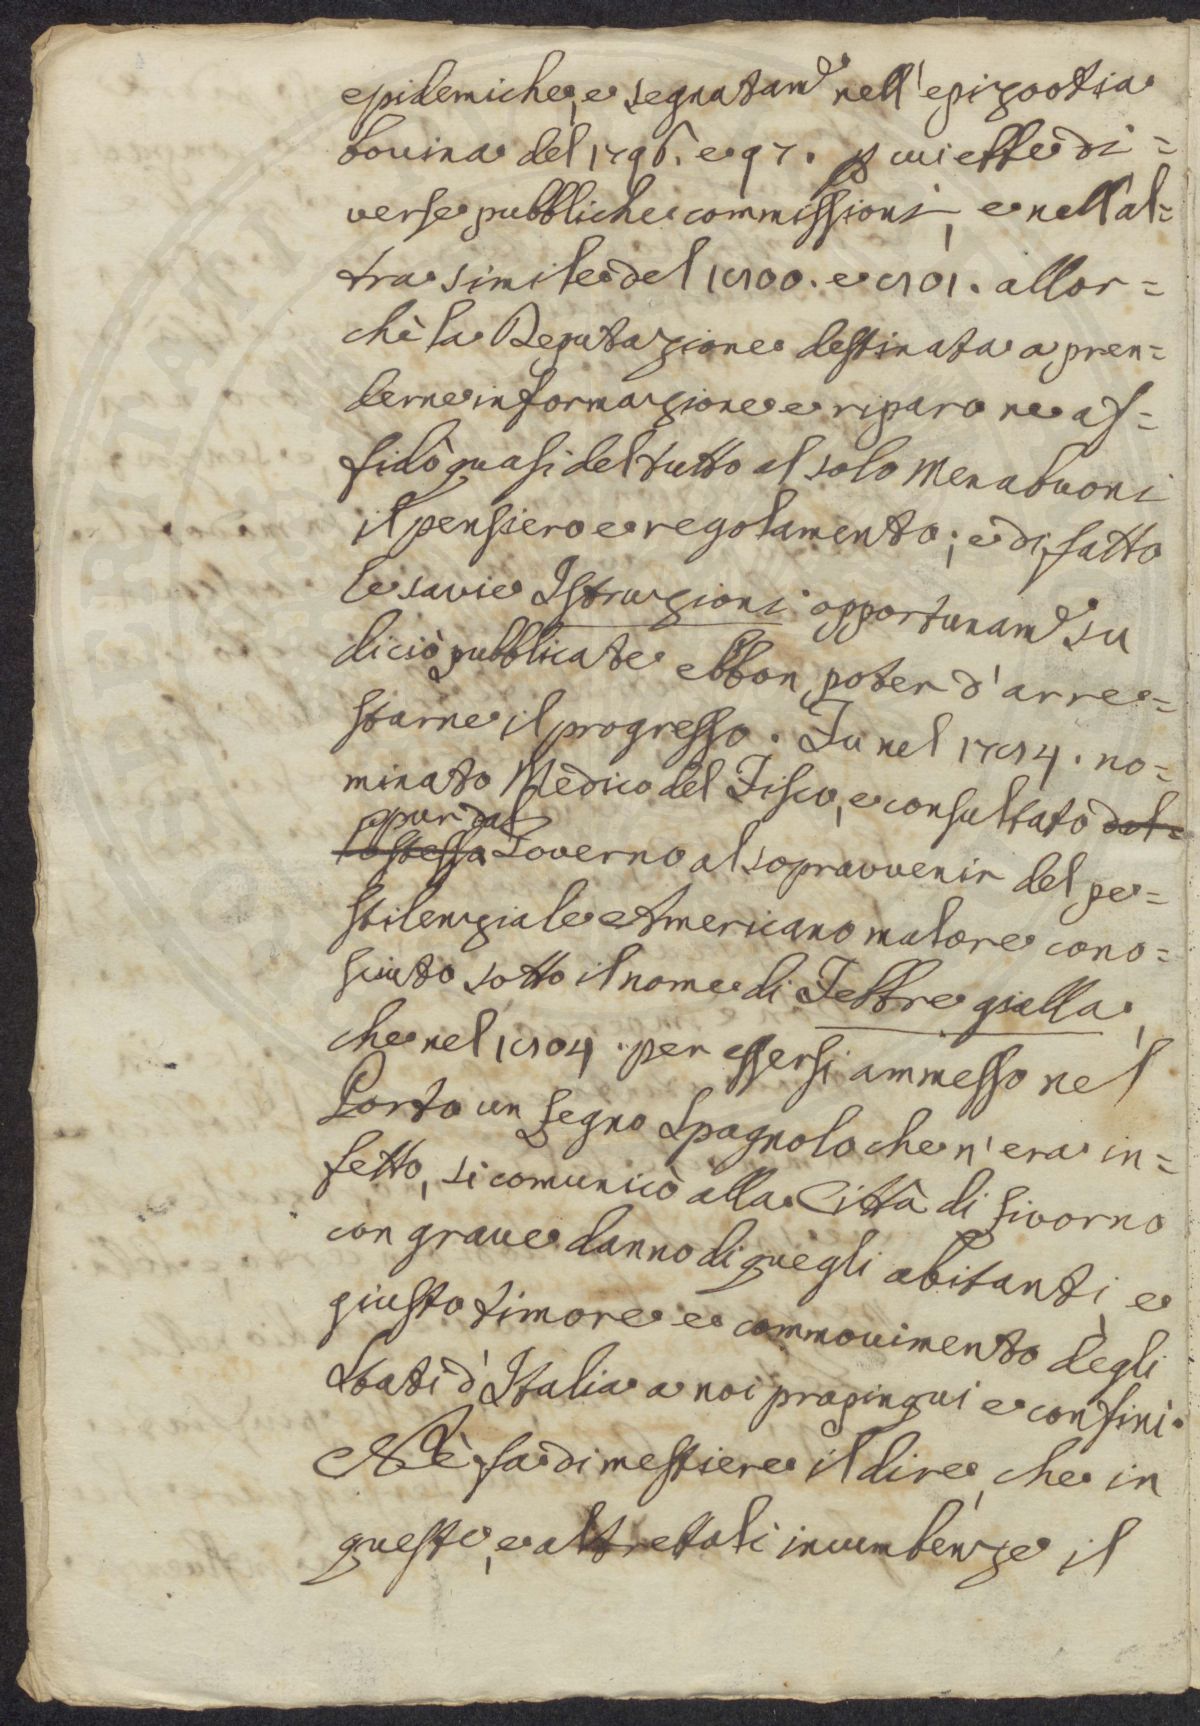 epidemiche, e segnatam.e nell'epizootia
bovina del 1796. e 97. p cui ebbe di=
verse pubbliche commissioni, e nell'al=
tra simile del 1800. e 801. allor=
chè la Deputazione destinata a pren=
derne informazione e riparo ne af=
fidò quasi del tutto al solo Menabuoni
il pensiero e regolamento; e di fatto
le savie Istruzioni opportunam.e su
di ciò pubblicate ebbon poter d'arre=
starne il progresso. Fu nel 1784. no=
minato Medico del Fisco, e consultato dal=
pur dal
lo stesso Governo al sopravvenir del pe=
stilenziale Americano malore cono=
sciuto sotto il nome di Febbre gialla,
che nel 1804. per essersi ammesso nel
Porto un Legno Spagnolo che n'era in=
fetto, si comunicò alla Città di Livorno
con grave danno di quegli abitanti, e
giusto timore e commovimento degli
Stati d'Italia a noi propinqui e confini.
Nè fa di mestiere il dire, che in
queste, e altrettali incumbenze il